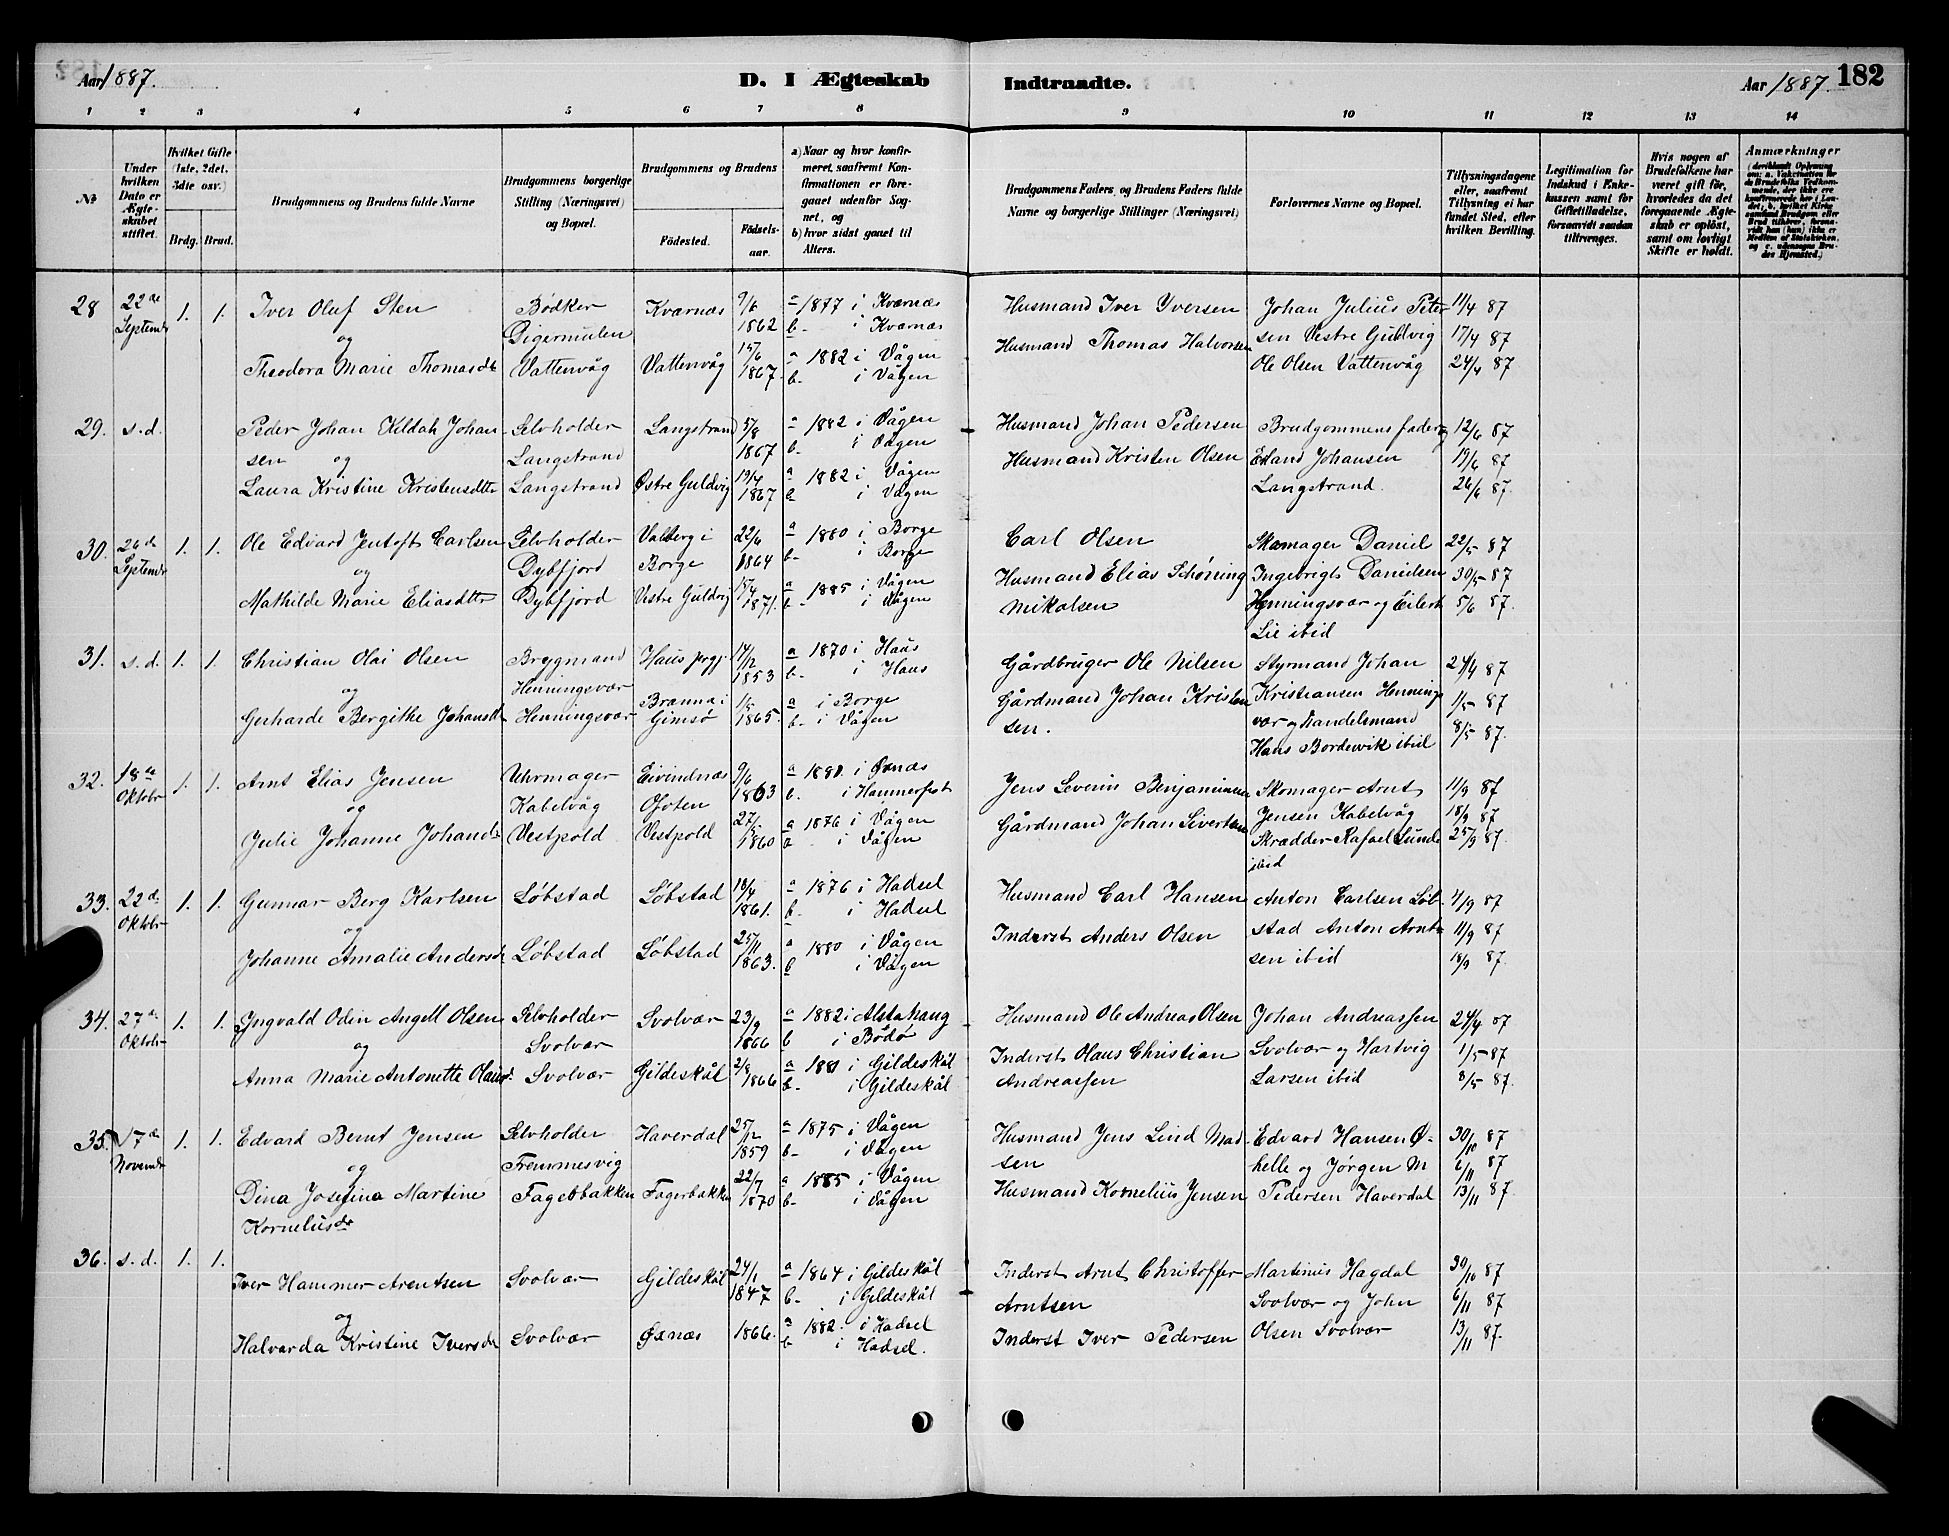 Aar 1887.
D. I Ægteskab Indtraadte.
Aar 1887. 182
1 2 3 4 5 6 7 8 9 10 11 12 13 14
№
Under hvilken Dato er Ægteskabet stiftet.
Hvilket Gifte (1ste, 2det, 3die osv.)
Brdg. Brud.
Brudgommens og Brudens fulde Navne
Brudgommens borgerlige Stilling (Næringsvei) og Bopæl.
Brudgommens og Brudens
Födested. Födselsaar.
a) Naar og hvor konfirmeret, saafremt Konfirmationen er foregaaet udenfor Sognet, og
b) hvor sidst gaaet til Alters.
Brudgommens Faders, og Brudens Faders fulde Navne og borgerlige Stillinger (Næringsvei)
Forlovernes Navne og Bopæl.
Tillysningsdagene eller, saafremt Tillysning ei har fundet Sted, efter hvilken Bevilling.
Legitimation for Indskud i Enkekassen samt for Giftetilladelse, forsaavidt saadan tiltrænges.
Hvis nogen af Brudefolkene har været gift för, hvorledes da det foregaaende Ægteskab er oplöst, samt om lovligt Skifte er holdt.
Anmærkninger
28 22de 1. 1. Iver Oluf Sten Bødker Kværnæs 9/6 a 1877 i Kværnæs Husmand Iver Yversen Johan Julius Peter 11/4 87
Septembr og Digermulen 1862 b- i Kværnæs sen Vestre Guldvig 17/4 87
Theodora Marie Thomasdtr Vattenvåg Vattenvåg 15/6 1867. a 1882 i Vågen b- i Vågen Husmand Thomas Halvorsen Ole Olsen Vattenvåg 24/4 87
29. s.d. Peder Johan Kildah Johan Selvholder Langstrand 5/8 a 1882 i Vågen Husmand Johan Pedersen Brudgommens fader og 12/6 87
sen og Langstrand 1867 b- i Vågen Husmand Kristen Olsen Erland Johansen 19/6 87
Laura Kristine Kristensdtr Langstrand Østre Guldvig 19/4 1867 a 1882 i Vågen b i Vågen Langstrand. 26/6 87.
30. 26de 1. 1. Ole Edvard Jentoft Carlsen Selvholder Valberg i 22/6 a 1880 i Borge Carl Olsen Skomager Daniel 22/5 87
Septembr og Dybfjord Borge 1864 b- i Borge Husmand Elias Schøning Ingebrigt Danielsen 30/5 87
Mathilde Marie Eliasdtr Dybfjord Vestre Guldvig 15/4 1871. a 1885 i Vågen b- i Vågen Nikolsen Henningsvær og Eilert 5/6 87.
Lie ibid
31. s.d. 1. 1. Christian Olai Olsen Brygmand Haus prgj. 14/12 a 1870 i Haus Gårdbruger Ole Nilsen Styrmand Johan 24/4 87
og Henningsvær 1853 b- i Haus Gårdmand Johan Kristen Kristiansen Hennings 1/5 87
Gerharde Bergithe Johansdtr Henningsvær Brænna i Gimsø 1/5 1865. a i Borge b- i Vågen sen. vær og Handelsmand 8/5 87.
Hans Bordevik ibid
32. 18de 1. 1. Arnt Elias Jensen Uhrmager Eivindnæs 9/6 a 1880 i Øxnæs Jens Severin Benjaminsen Skomager Arnt 11/9 87
Oktobr og Kabelvåg Ofoten 1863 b. i Hammerfest Jensen Kabelvåg 18/9 87
Julie Johanne Johansdr Vestpold Vestpold 27/5 1860 a 1876 i Vågen i Vågen Gårdmand Johan Sivertsen Skrædder Rafael Lunde 25/9 87.
ibid
33. 22de 1. 1. Gunnar Berg Karlsen Løbstad Løbstad 18/4 a 1876 i Hadsel Husmand Carl Hansen Anton Carlsen Løb- 4/9 87
Oktobr og 1861. b- i Hadsel Inderst Anders Olsen stad Anton Arnt 11/9 87
Johanne Amalie Andersdr Løbstad Løbstad 25/11 1863. a 1880 i Vågen b i Vågen sen ibid 18/9 87.
34. 27de 1. 1. Yngvald Odin Angell Olsen Selvholder Svolvær 23/9 a 1882 i Alstahaug Husmand Ole Andreas Olsen Johan Andreassen 24/4 87
Oktobr og Svolvær 1866 b i Bødø Inderst Olaus Christian Svolvær og Hartvig 1/5 87
Anna Marie Antonette Olausd. Svolvær Gildeskål 2/8 1866 a 1881 i Gildeskål b- i Gildeskål Andreassen Larsen ibid 8/5 87.
35. 17de 1. 1. Edvard Bernt Jensen Selvholder Haverdal 25/12 a 1875 i Vågen Husmand Jens Lind Mad Edvard Hansen Ø- 30/10 87
Novembr og Fremmesvig 1859 b- i Vågen sen helle og Jørgen M 6/11 87
Dina Josefina Martine Fagerbakken Fagerbakken 22/7 1870 a 1885 i Vågen b- i Vågen Husmand Kornelius Jensen Pedersen Haverdal 13/11 87.
Korneliusdr
36. s.d. 1. 1. Iver Hammer Arentsen Svolvær Gildeskål 24/1 1847 a 1864 i Gildeskål b- i Gildeskål Inderst Arnt Christoffer Martinus Hagdal 30/10 87
og Arntsen Svolvær og John 6/11 87
Halvarda Kristine Iversdr Svolvær Øxnæs 1866. a 1882. i Hadsel b i Hadsel. Inderst Iver Pedersen Olsen Svolvær 13/11 87.